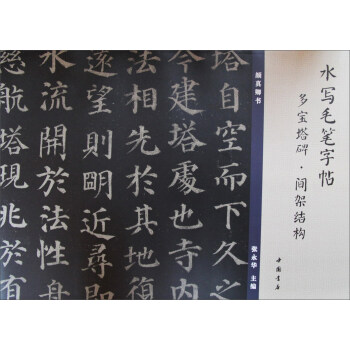 水写毛笔字帖
多宝塔碑·间架结构
中国书店
颜真卿书
张永华 主编
塔自空而下久之
今建塔處也寺
法相先於其地復
遠望則眀近尋即
水流開於法性舟
慈航塔現兆於有